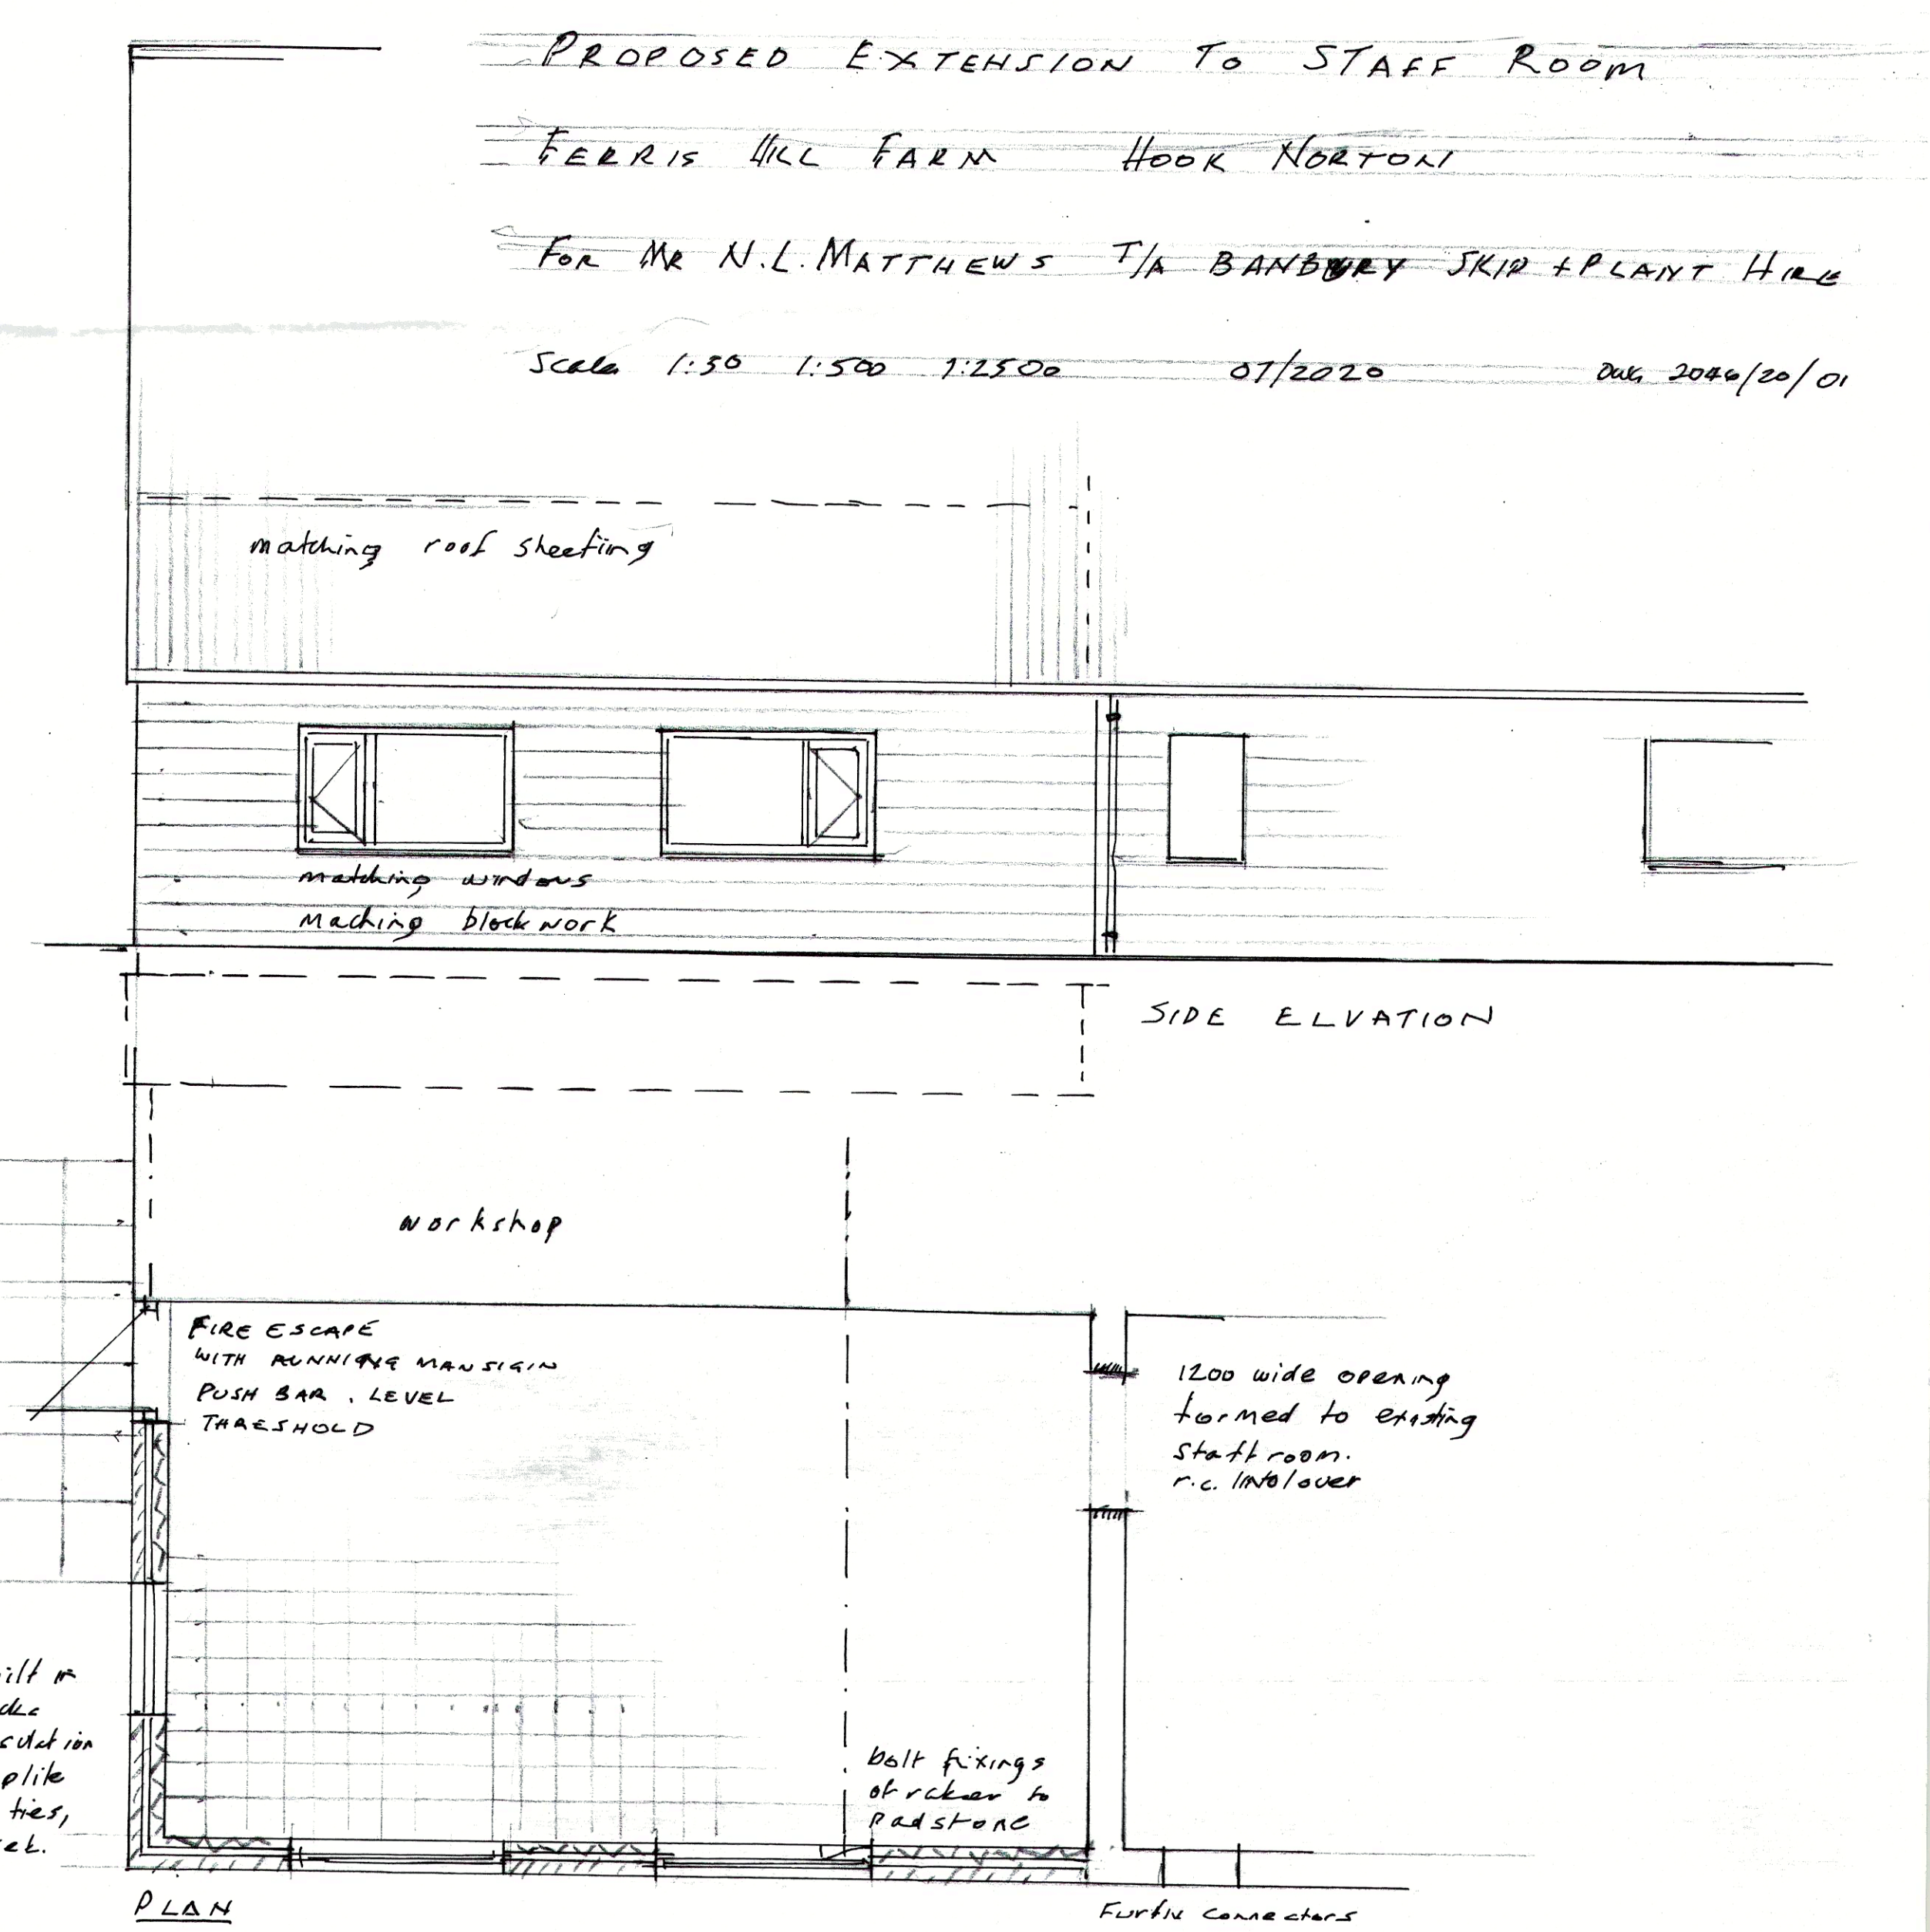 PROPOSED EXTENSION TO STAFF ROOM
FERRIS HILL FARM HOOK NORTON
FOR MR N.L. MATTHEWS T/A BANBURY SKIP + PLANT HIRE
Scales 1:50 1:500 1:2500 07/2020 DWG 2046/20/01
matching roof sheeting
matching windows
maching blockwork
SIDE ELVATION
workshop
FIRE ESCAPE
WITH
PUSH BAR. LEVEL
THRESHOLD
1200 wide opening
formed to existing
staff room.
r.c. lintol over
bolt fixings
of raker to
padstone
ties,
PLAN
Furfix connectors